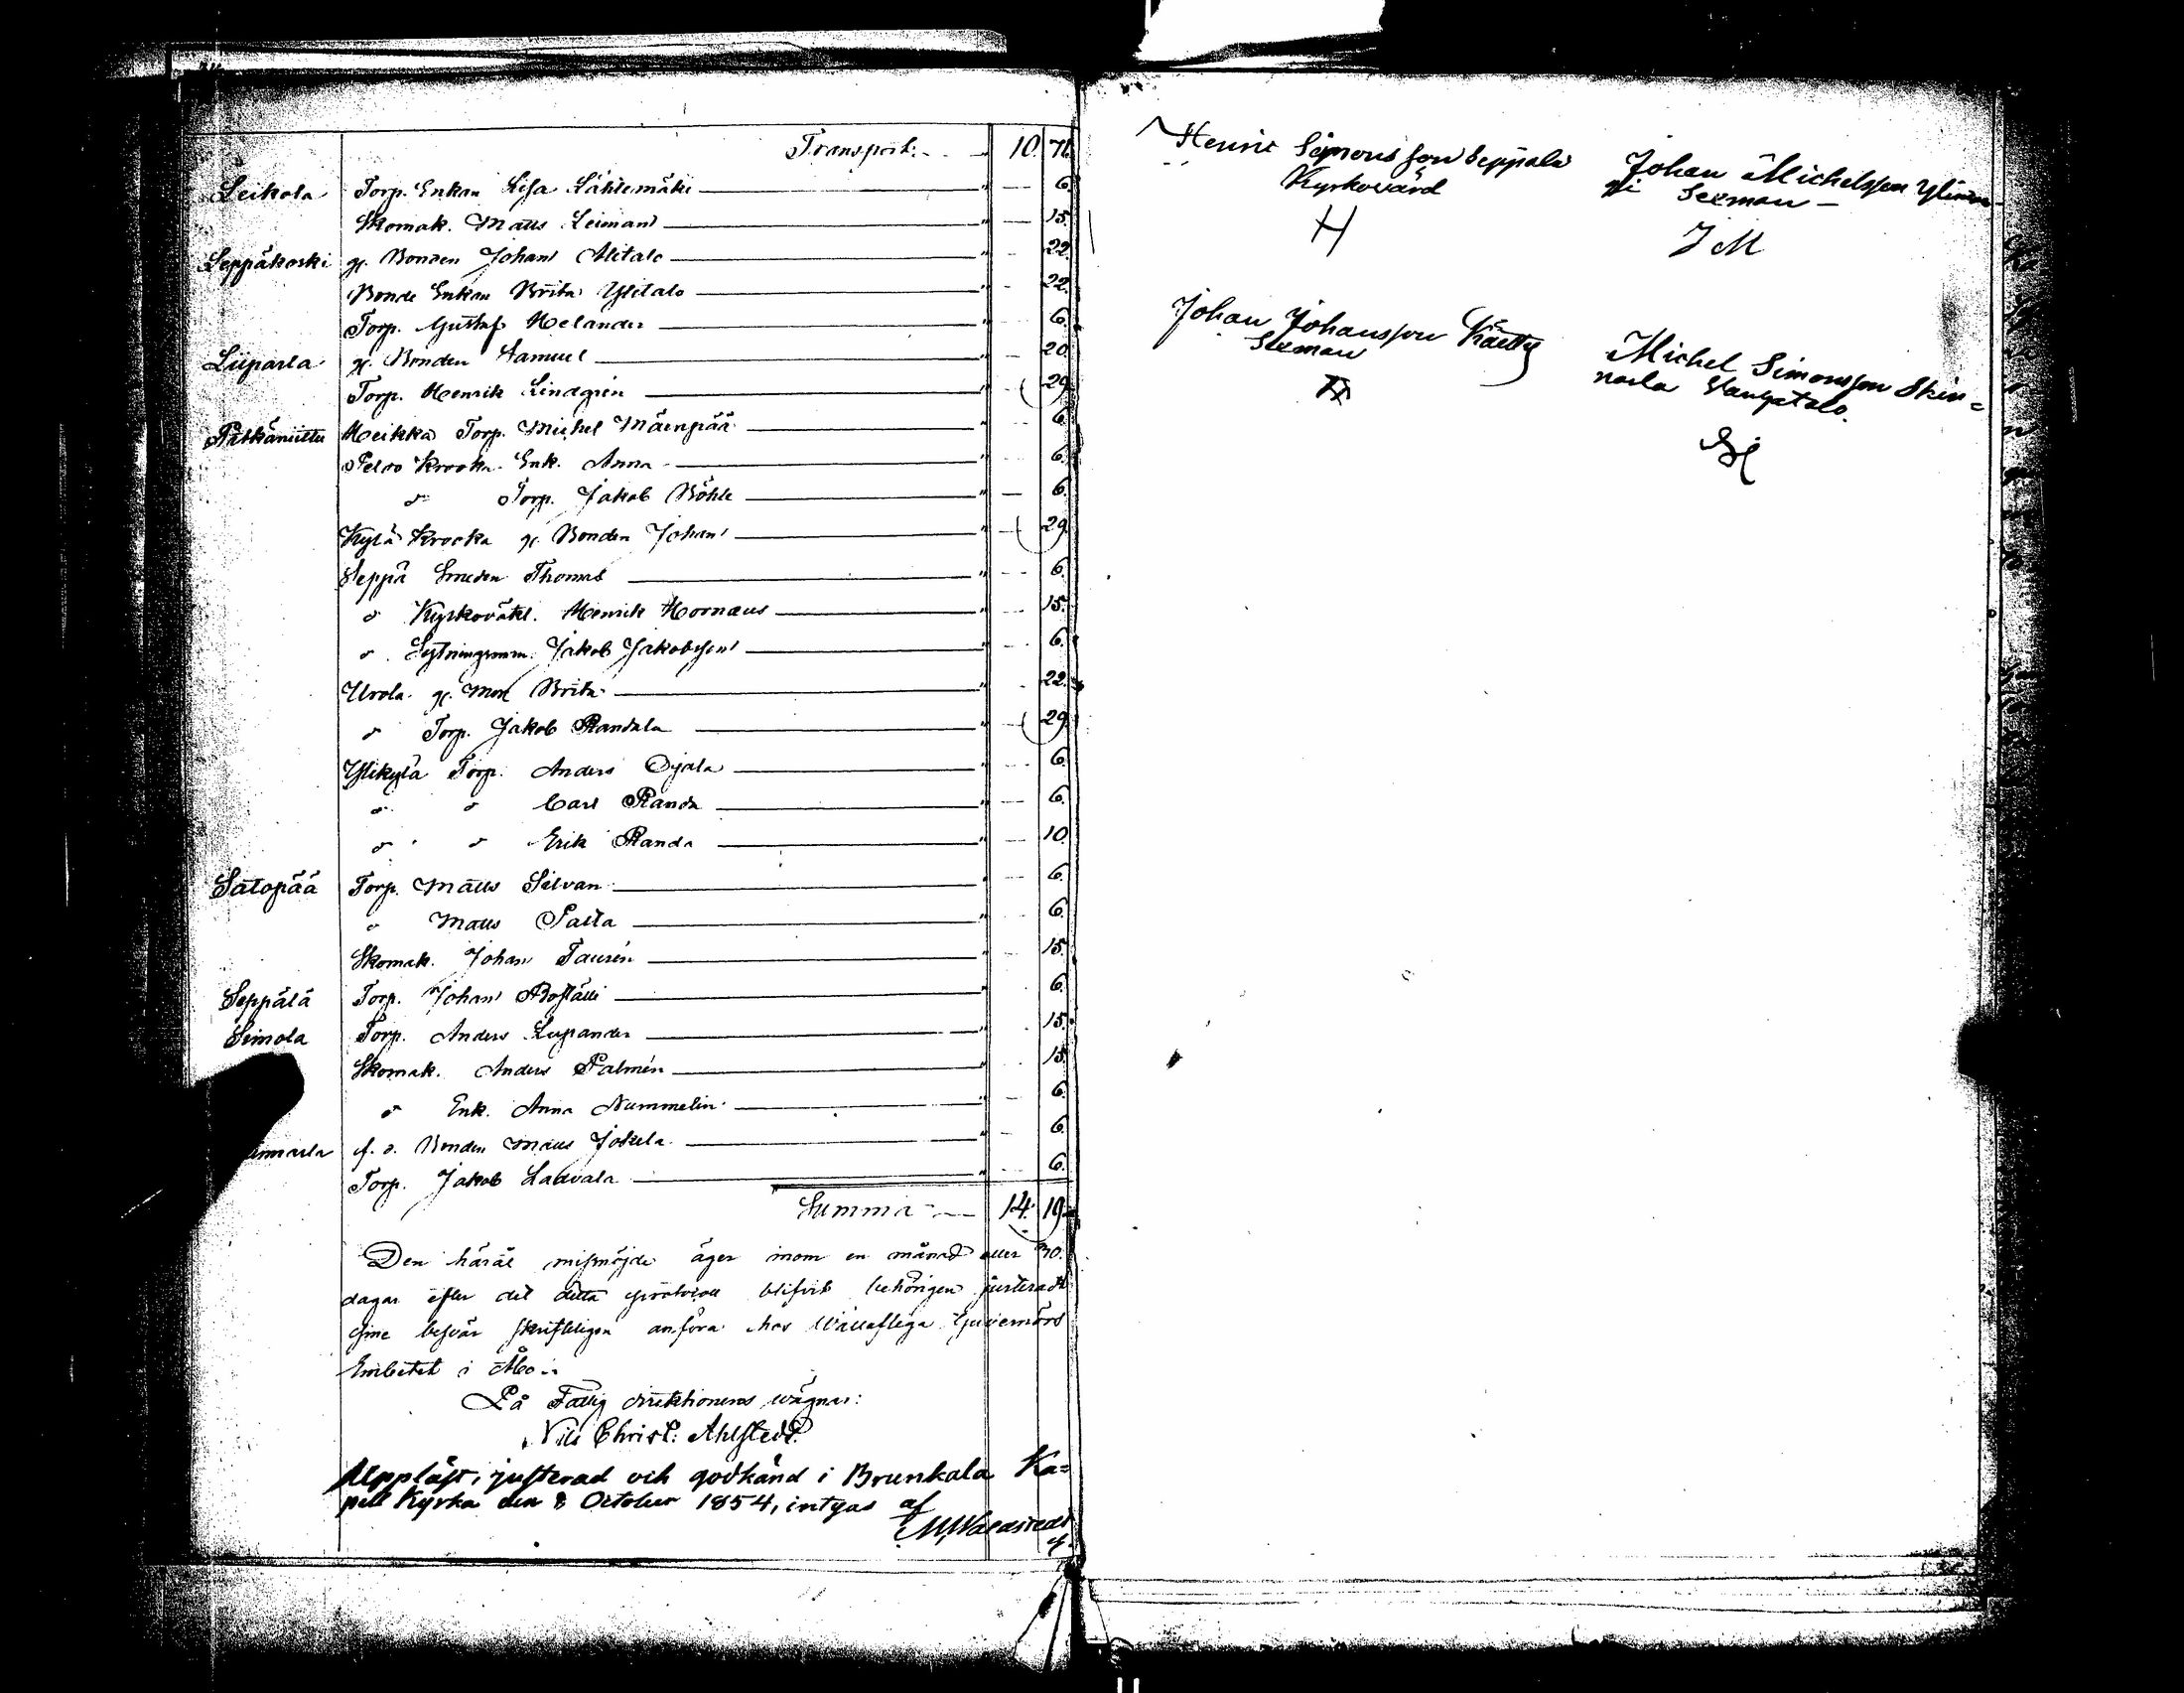 Transport. 10. 71.
Leikola Torp. Enkan Lisa Lähtemäki " 6.
Skomak. Matts Leiman " 15.
Leppäkoski gl. Bonden Johan Alitalo " 22.
Bonde Enkan Brita Ylitalo " 22.
Torp. Gustaf Helander " 6.
Liiparla gl. Bonden Samuel " 20.
Torp. Henrik Lindgrén " 29.
Pitkäniittu Heikka Torp. Michel Mäenpää " 6.
Pelto Krooka Enk. Anna " 6.
d:o Torp. Jakob Böhle " 6.
Kylä Krooka gl. Bonden Johan " 29.
Seppä Smeden Thomas " 6.
d:o Kyrkoväkt. Henrik Hornæus " 15.
d:o Sytningsm. Jakob Jakobsson " 6.
Urola gl. Mor Brita " 22.
d:o Torp. Jakob Randala " 29.
Ylikylä Torp. Anders Ojala " 6.
d:o d:o Carl Randa " 6.
d:o d:o Erik Randa " 10.
Satopää Torp. Matts Silvan " 6.
d:o Matts Palta " 6.
Skomak. Johan Taurén " 15.
Seppälä Torp. Johan " 6.
Simola Torp. Anders Lupander " 15.
Skomak. Anders Palmén " 15.
d:o Enk. Anna Nummelin " 6.
f. d. Bonden Matts Jokela " 6.
Torp. Jakob Ladvala " 6.
Summa 14. 19.
Den häråt missnöjde äger inom en månad eller 30.
dagar efter det detta protocoll blifvit behörigen justeradt
sine besvär skrifteligen anföra hos Wällofliga Guvernörs
Embetet i Åbo.
På Fattig direktionens wägnar:
Nils Christ: Ahlstedt.
Uppläst, justerad och godkänd i Brunkala Ka=
pell Kyrka den 8 October 1854, intygas af
M. Waldstedt
Henric Simonsson Seppälä
Kyrkovärd
H
Johan Michelsson
Sexman
J M
Johan Johansson
Sexman
Michel Simonsson Skin=
narla Vangatalo